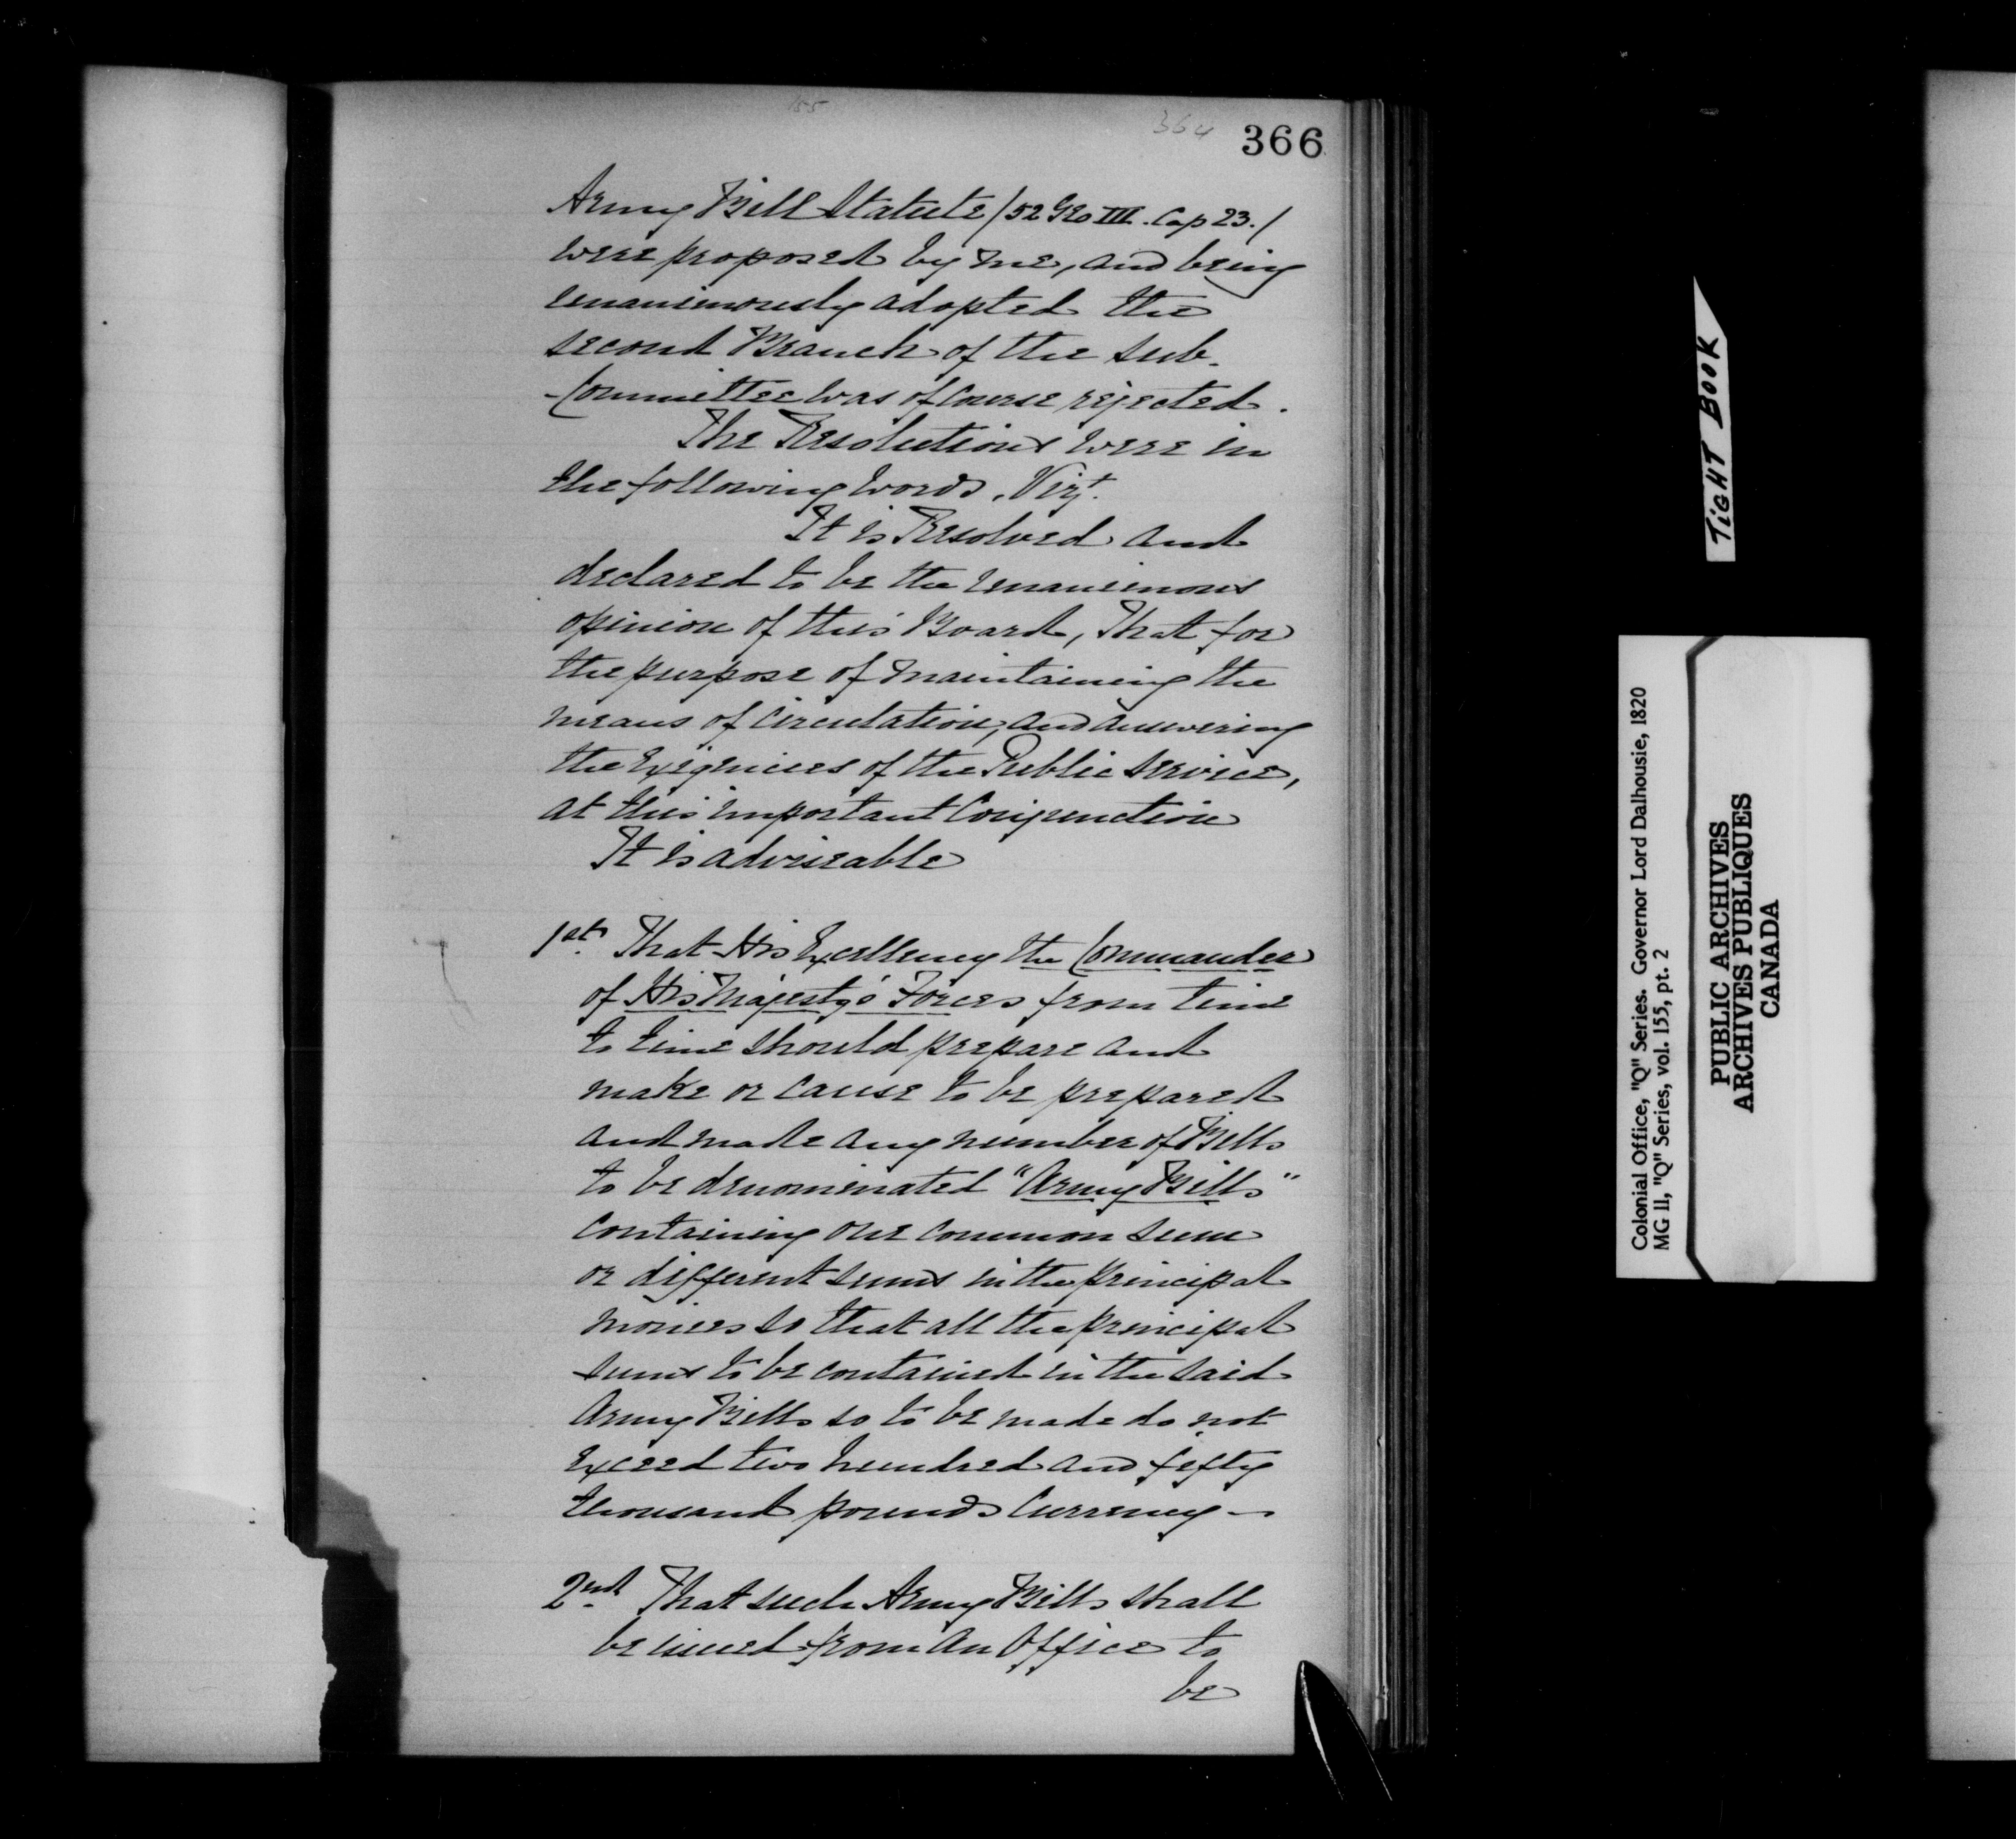 155
364
366
Army Bill Statute /52 Geo III. Cap 23./
were proposed by me, and being
unanimously adopted the
second Branch of the Sub-
-Committee was of Course rejected.
The Resolutions were in
the following words, Vizt.
It is Resolved and
declared to be the unanimous
opinion of this Board, That for
the purpose of maintaining the
means of Circulation, and answering
the Exigencies of the Public Service,
at this important Conjunction
It is adviseable
1st. That His Excellency the Commander
of His Majesty's Forces from time
to time should prepare and
make or cause to be prepared
and made any number of Bills
to be denominated "Army Bills"
Containing one common sum
or different sums in the principal
monies so that all the principal
sums to be contained in the said
Army Bills so to be made do not
Exceed two hundred and fifty
thousand pounds Currency —
2nd. That such Army Bills shall
be issued from an Office to
be
TIGHT BOOK
Colonial Office, "Q" Series. Governor Lord Dalhousie, 1820
MG 11, "Q" Series, vol. 155, pt. 2
PUBLIC ARCHIVES
ARCHIVES PUBLIQUES
CANADA